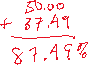 50.00
+ 37.49
87.49%